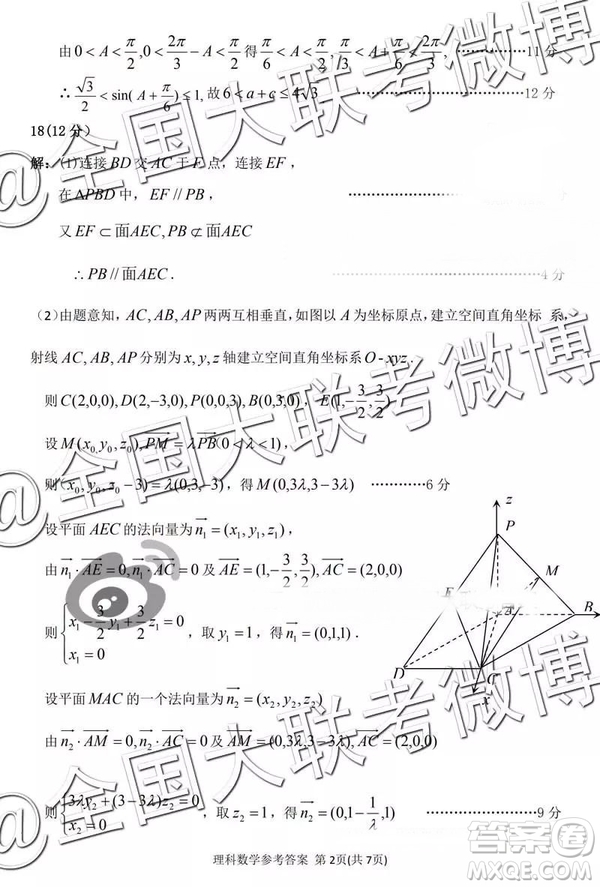 由0<A<π/2,0<2π/3-A<π/2得π/6<A<π/2, π/3<A+π/6<2π/3, ……………11分
∴√3/2<sin(A+π/6)≤1,故6<a+c≤4√3 ……………………12分
18(12分)
解：(1)连接BD交AC于F点，连接EF，
在ΔPBD中，EF//PB， ……………………
又EF⊂面AEC,PB⊄面AEC
∴PB//面AEC. ……………………4分
(2)由题意知，AC,AB,AP两两互相垂直，如图以A为坐标原点，建立空间直角坐标 系，
射线AC,AB,AP分别为x,y,z轴建立空间直角坐标系O-xyz.
则C(2,0,0),D(2,-3,0),P(0,0,3),B(0,3,0)，E(1,-3/2,3/2)
设M(x₀,y₀,z₀),PM=λPB(0<λ<1)，
则(x₀,y₀,z₀-3)=λ(0,3,-3)，得M(0,3λ,3-3λ) …………6分
设平面AEC的法向量为n₁=(x₁,y₁,z₁)，
由n₁·AE=0,n₁·AC=0及AE=(1,-3/2,3/2),AC=(2,0,0)
则{x₁-3/2y₁+3/2z₁=0
x₁=0
，取y₁=1，得n₁=(0,1,1).
z
P
M
E
A
B
D
C
x
设平面MAC的一个法向量为n₂=(x₂,y₂,z₂)
由n₂·AM=0,n₂·AC=0及AM=(0,3λ,3-3λ),AC=(2,0,0)
则{3λy₂+(3-3λ)z₂=0
，取z₂=1，得n₂=(0,1-1/λ,1) ……………9分
理科数学参考答案 第2页(共7页)
@全国大联考微博
@全国大联考微博
@全国大联考微博
答案圈
MXQE.COM